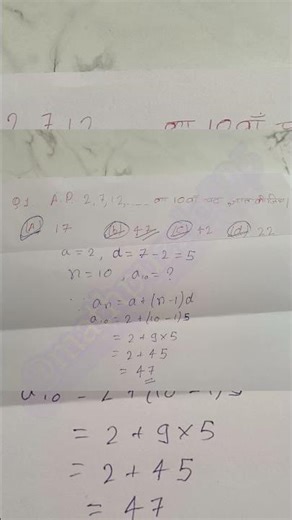 2, 7, 12 का 10वाँ
Q.1 A.P. 2, 7, 12, ...... का 10वाँ पद ज्ञात कीजिए।
(A) 17 (B) 47 (C) 42 (d) 22
a = 2, d = 7 - 2 = 5
n = 10, a₁₀ = ?
∵ aₙ = a + (n-1)d
a₁₀ = 2 + (10-1)5
= 2 + 9×5
= 2 + 45
= 47
a₁₀ = 2 + (10-1)5
= 2 + 9×5
= 2 + 45
= 47